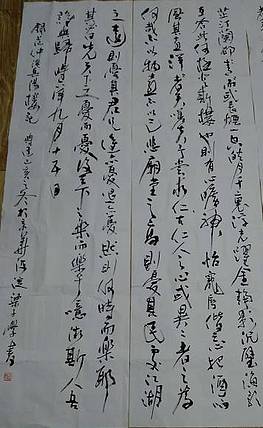 芷汀蘭郁郁青青而或長煙一空皓月千里浮光耀金靜影沉璧漁歌
互答此樂何極登斯樓也則有心曠神怡寵辱偕忘把酒臨
風其喜洋洋者矣嗟夫予嘗求古仁人之心或異二者之為
何哉不以物喜不以己悲居廟堂之高則憂其民處江湖
之遠則憂其君是進亦憂退亦憂然則何時而樂耶
其必曰先天下之憂而憂後天下之樂而樂乎噫微斯人吾
誰與歸時六年九月十五日
錄范仲淹岳陽樓記 時在己亥之冬於京華